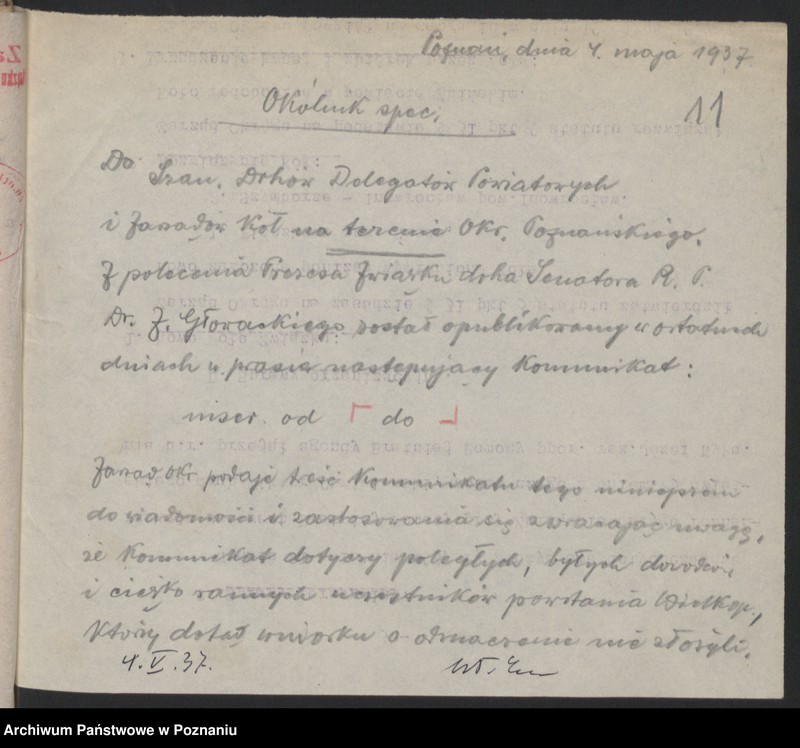 Poznań, dnia 4. maja 1937
Okólnik spec.
11
Do
Szan. Drhów Delegatów Powiatowych
i Zarządów Kół na terenie Okr. Poznańskiego.
Z polecenia Prezesa Związku drha Senatora R. P.
Dr. Z. Głowackiego został opublikowany w ostatnich
dniach w prasie następujący komunikat:
inser. od do
Zarząd Okr podaje treść komunikatu tego niniejszem
do wiadomości i zastosowania się zwracając uwagę,
że komunikat dotyczy poległych, byłych dowódców
i ciężko rannych uczestników powstania Wielkop.,
którzy dotąd wniosku o odznaczenie nie złożyli.
4.V.37.
Archiwum Państwowe w Poznaniu